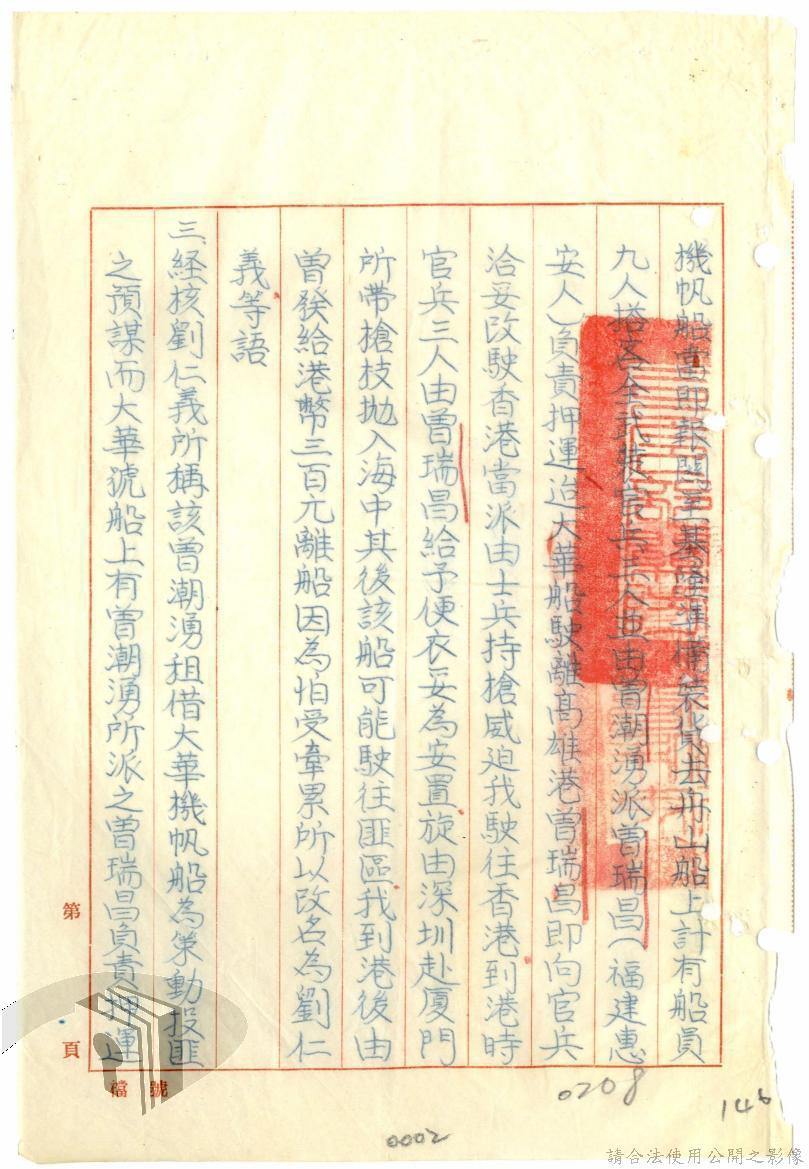 機帆船當即報關至基隆準備裝貨去舟山船上計有船員
九人搭客全武裝官兵三人並由曾潮湧派曾瑞昌(福建惠
安人)負責押運迨大華船駛離髙雄港曾瑞昌即向官兵
洽妥改駛香港當派由士兵持槍威迫我駛往香港到港時
官兵三人由曾瑞昌給予便衣妥為安置旋由深圳赴廈門
所帶槍枝拋入海中其後該船可能駛往匪區我到港後由
曾發給港幣三百元離船因為怕受牽累所以改名為劉仁
義等語
三、經核劉仁義所稱該曾潮湧租借大華機帆船為策動投匪
之預謀而大華號船上有曾潮湧所派之曾瑞昌負責押運
第 頁
檔號
0208
146
0002
請合法使用公開之影像